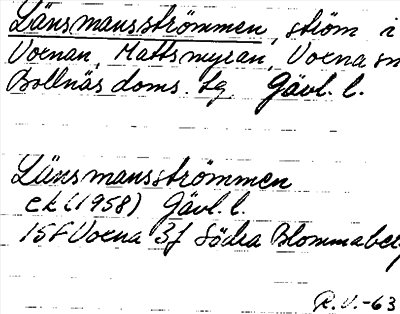 Länsmansströmmen, ström i
Voxnan, Mattsmyran, Voxna sn
Bollnäs doms. tg. Gävl. l.
Länsmansströmmen
ek (1958) Gävl. l.
15F Voxna 3f Södra Blommaberg
R.V.-63